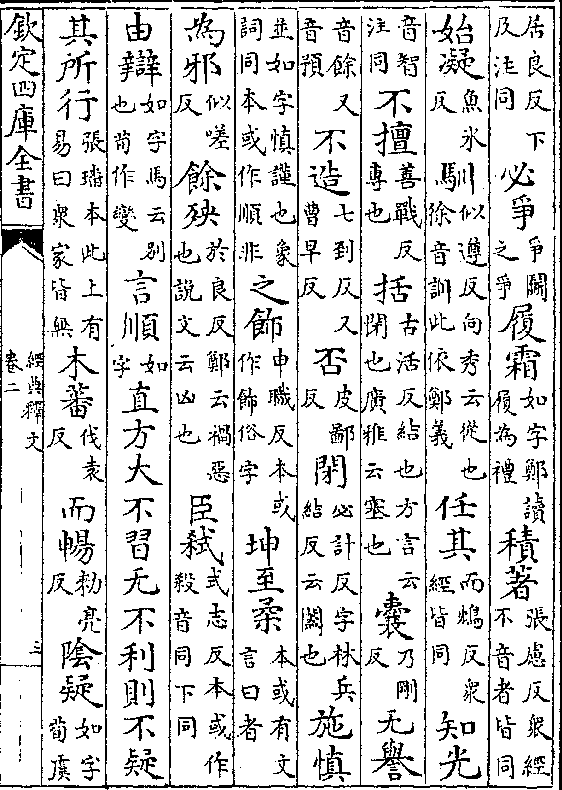 居良反下及注同必爭爭鬭之爭履霜如字鄭讀履為禮積著張慮反衆經不音者皆同
始凝魚氷反馴似遵反向秀云從也徐音訓此依鄭義任其而鴆反衆經皆同知光
音智注同不擅善戰反專也括古活反結也方言云閉也廣雅云塞也囊乃剛反无譽
音餘又音預不造七到反又曹早反否皮鄙反閉必計反字林兵結反云闔也施慎
並如字慎謹也象詞同本或作順非之飾申職反本或作餝俗字坤至柔本或有文言曰者
為邪似嗟反餘殃於良反鄭云禍惡也説文云凶也臣弑式志反本或作殺音同下同
由辯如字馬云别也荀作變言順如字直方大不習无不利則不疑
其所行張璠本此上有易曰衆家皆無木蕃伐袁反而暢勑亮反陰疑如字荀虞
欽定四庫全書
經典釋文
卷二
三